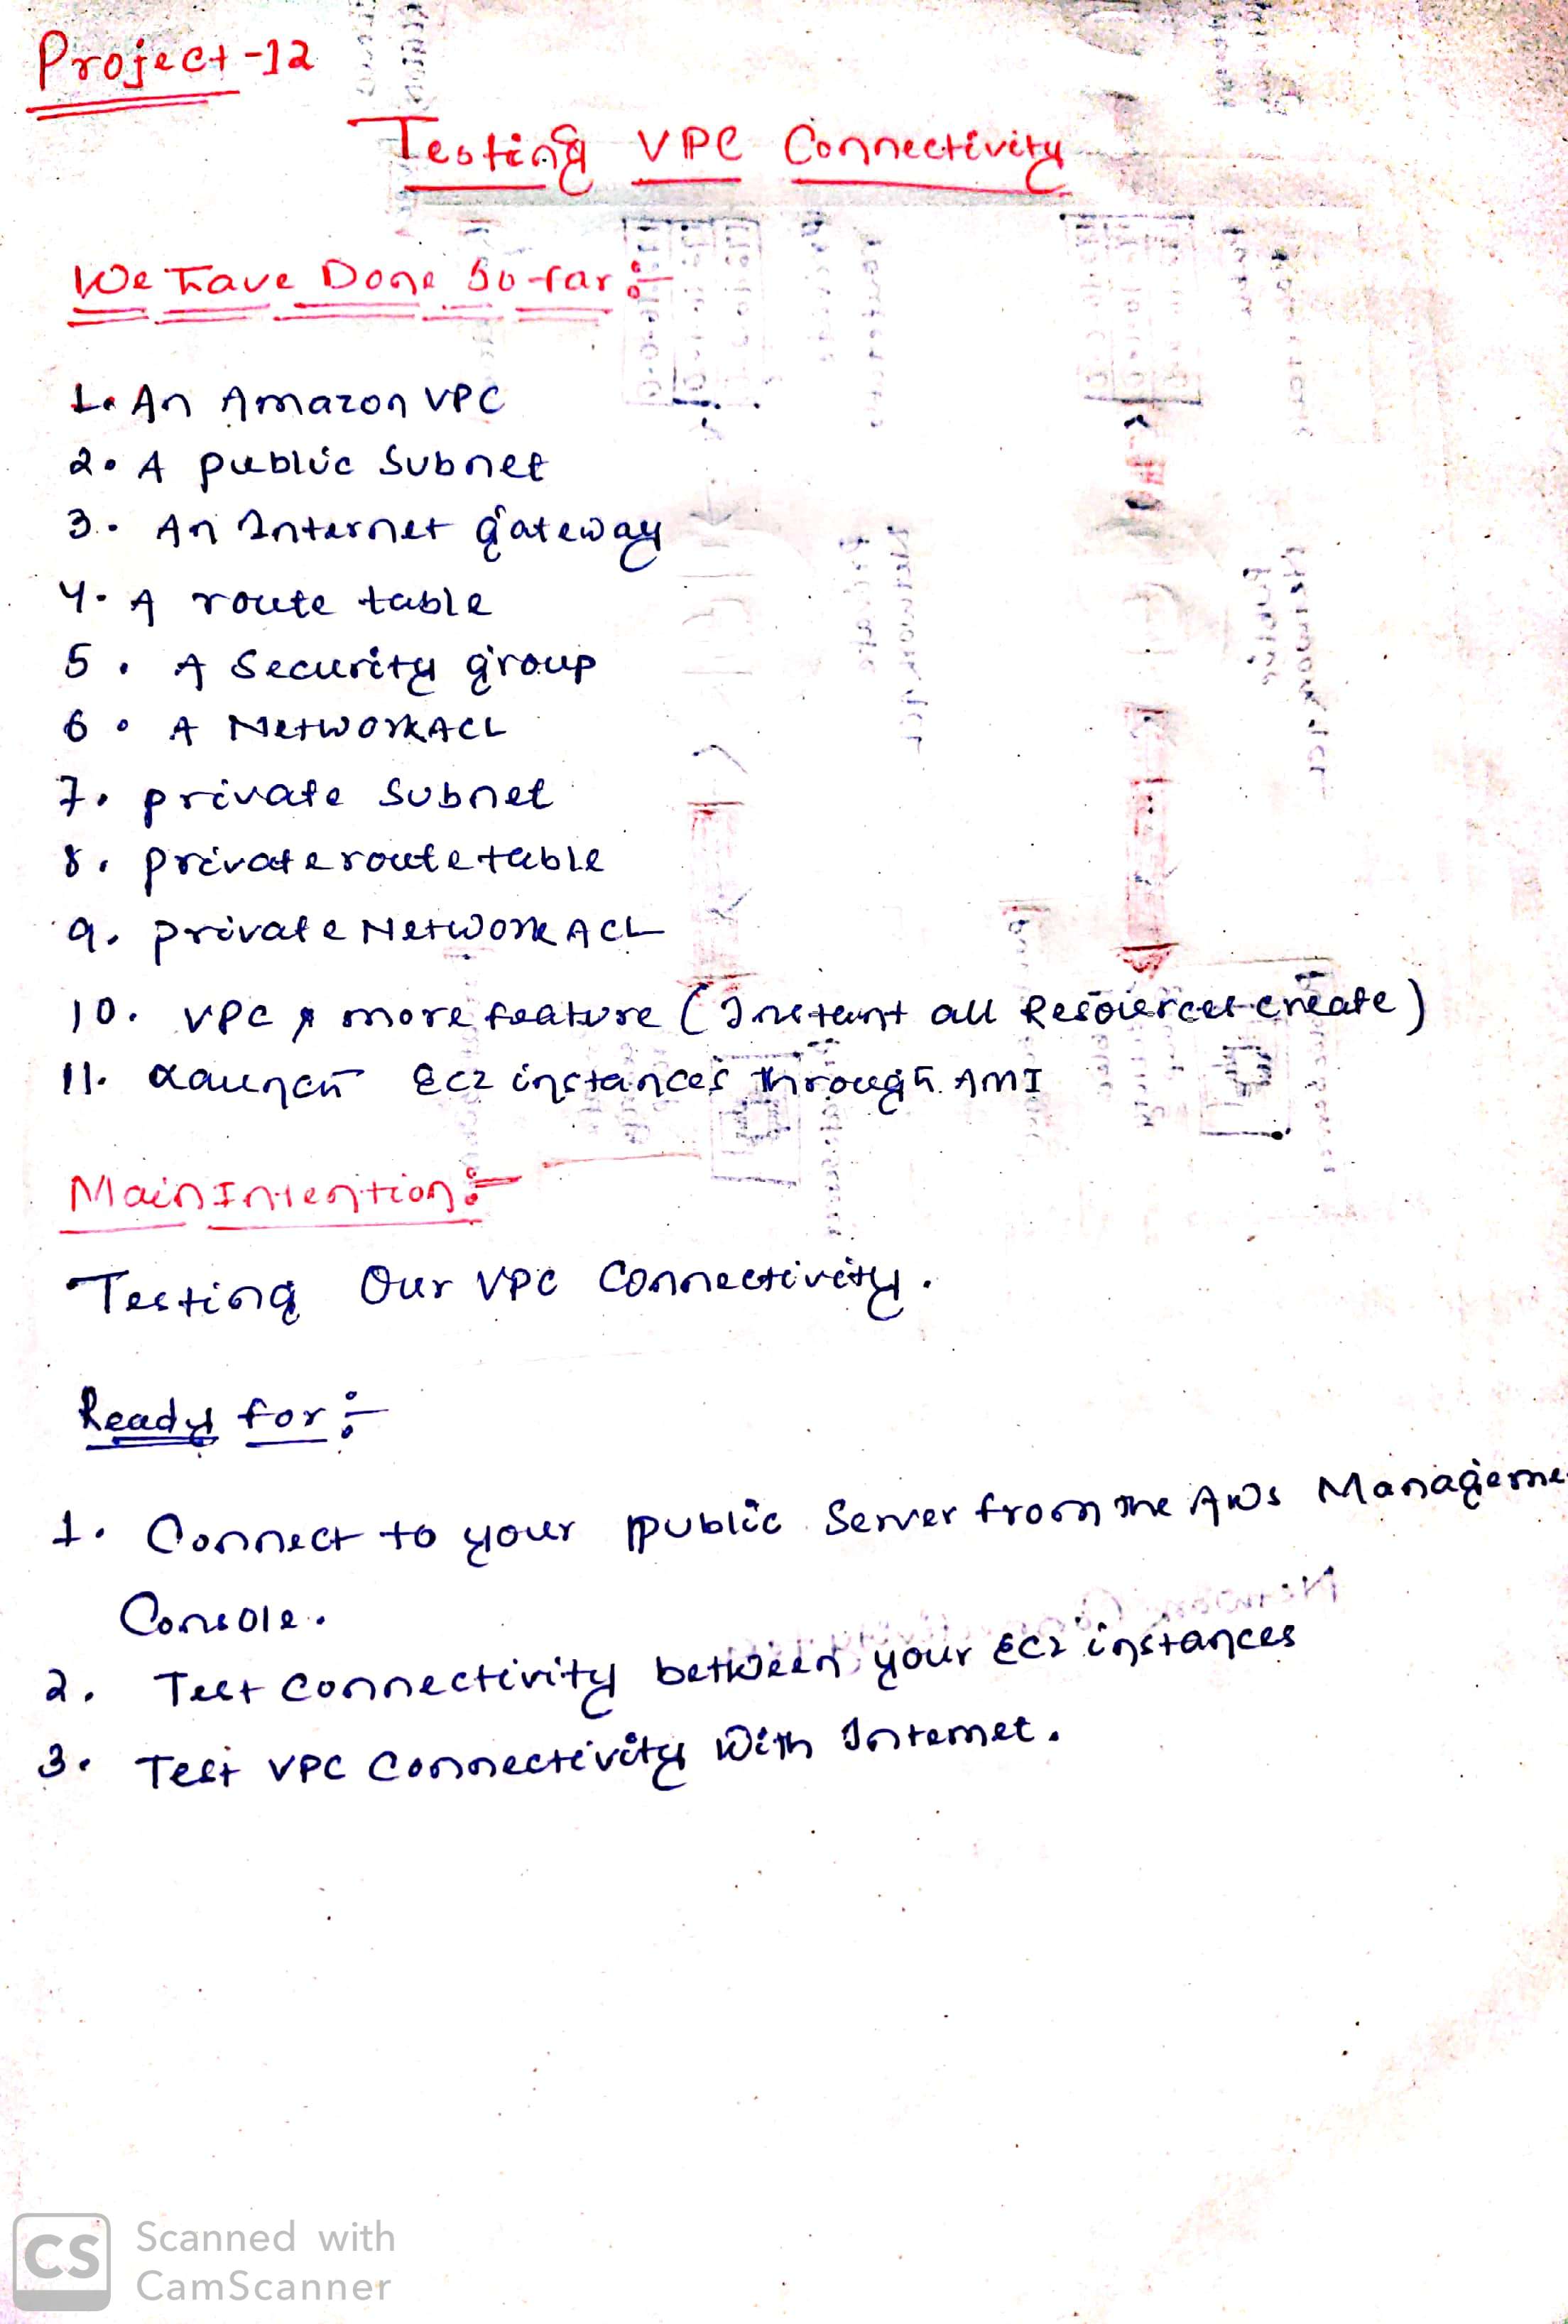 Project-12
Testing VPC Connectivity
We have Done So far :-
1. An Amazon VPC
2. A public Subnet
3. An Internet gateway
4. A route table
5. A Security group
6. A Network ACL
7. private Subnet
8. private route table
9. private Network ACL
10. VPC & more feature (Instant all Resources create)
11. Launch EC2 instances through AMI
Main Intention :-
Testing Our VPC Connectivity.
Ready for :-
1. Connect to your public Server from the AWS Manageme
Console.
2. Test Connectivity between your EC2 instances
3. Test VPC Connectivity With Internet.
CS Scanned with
CamScanner